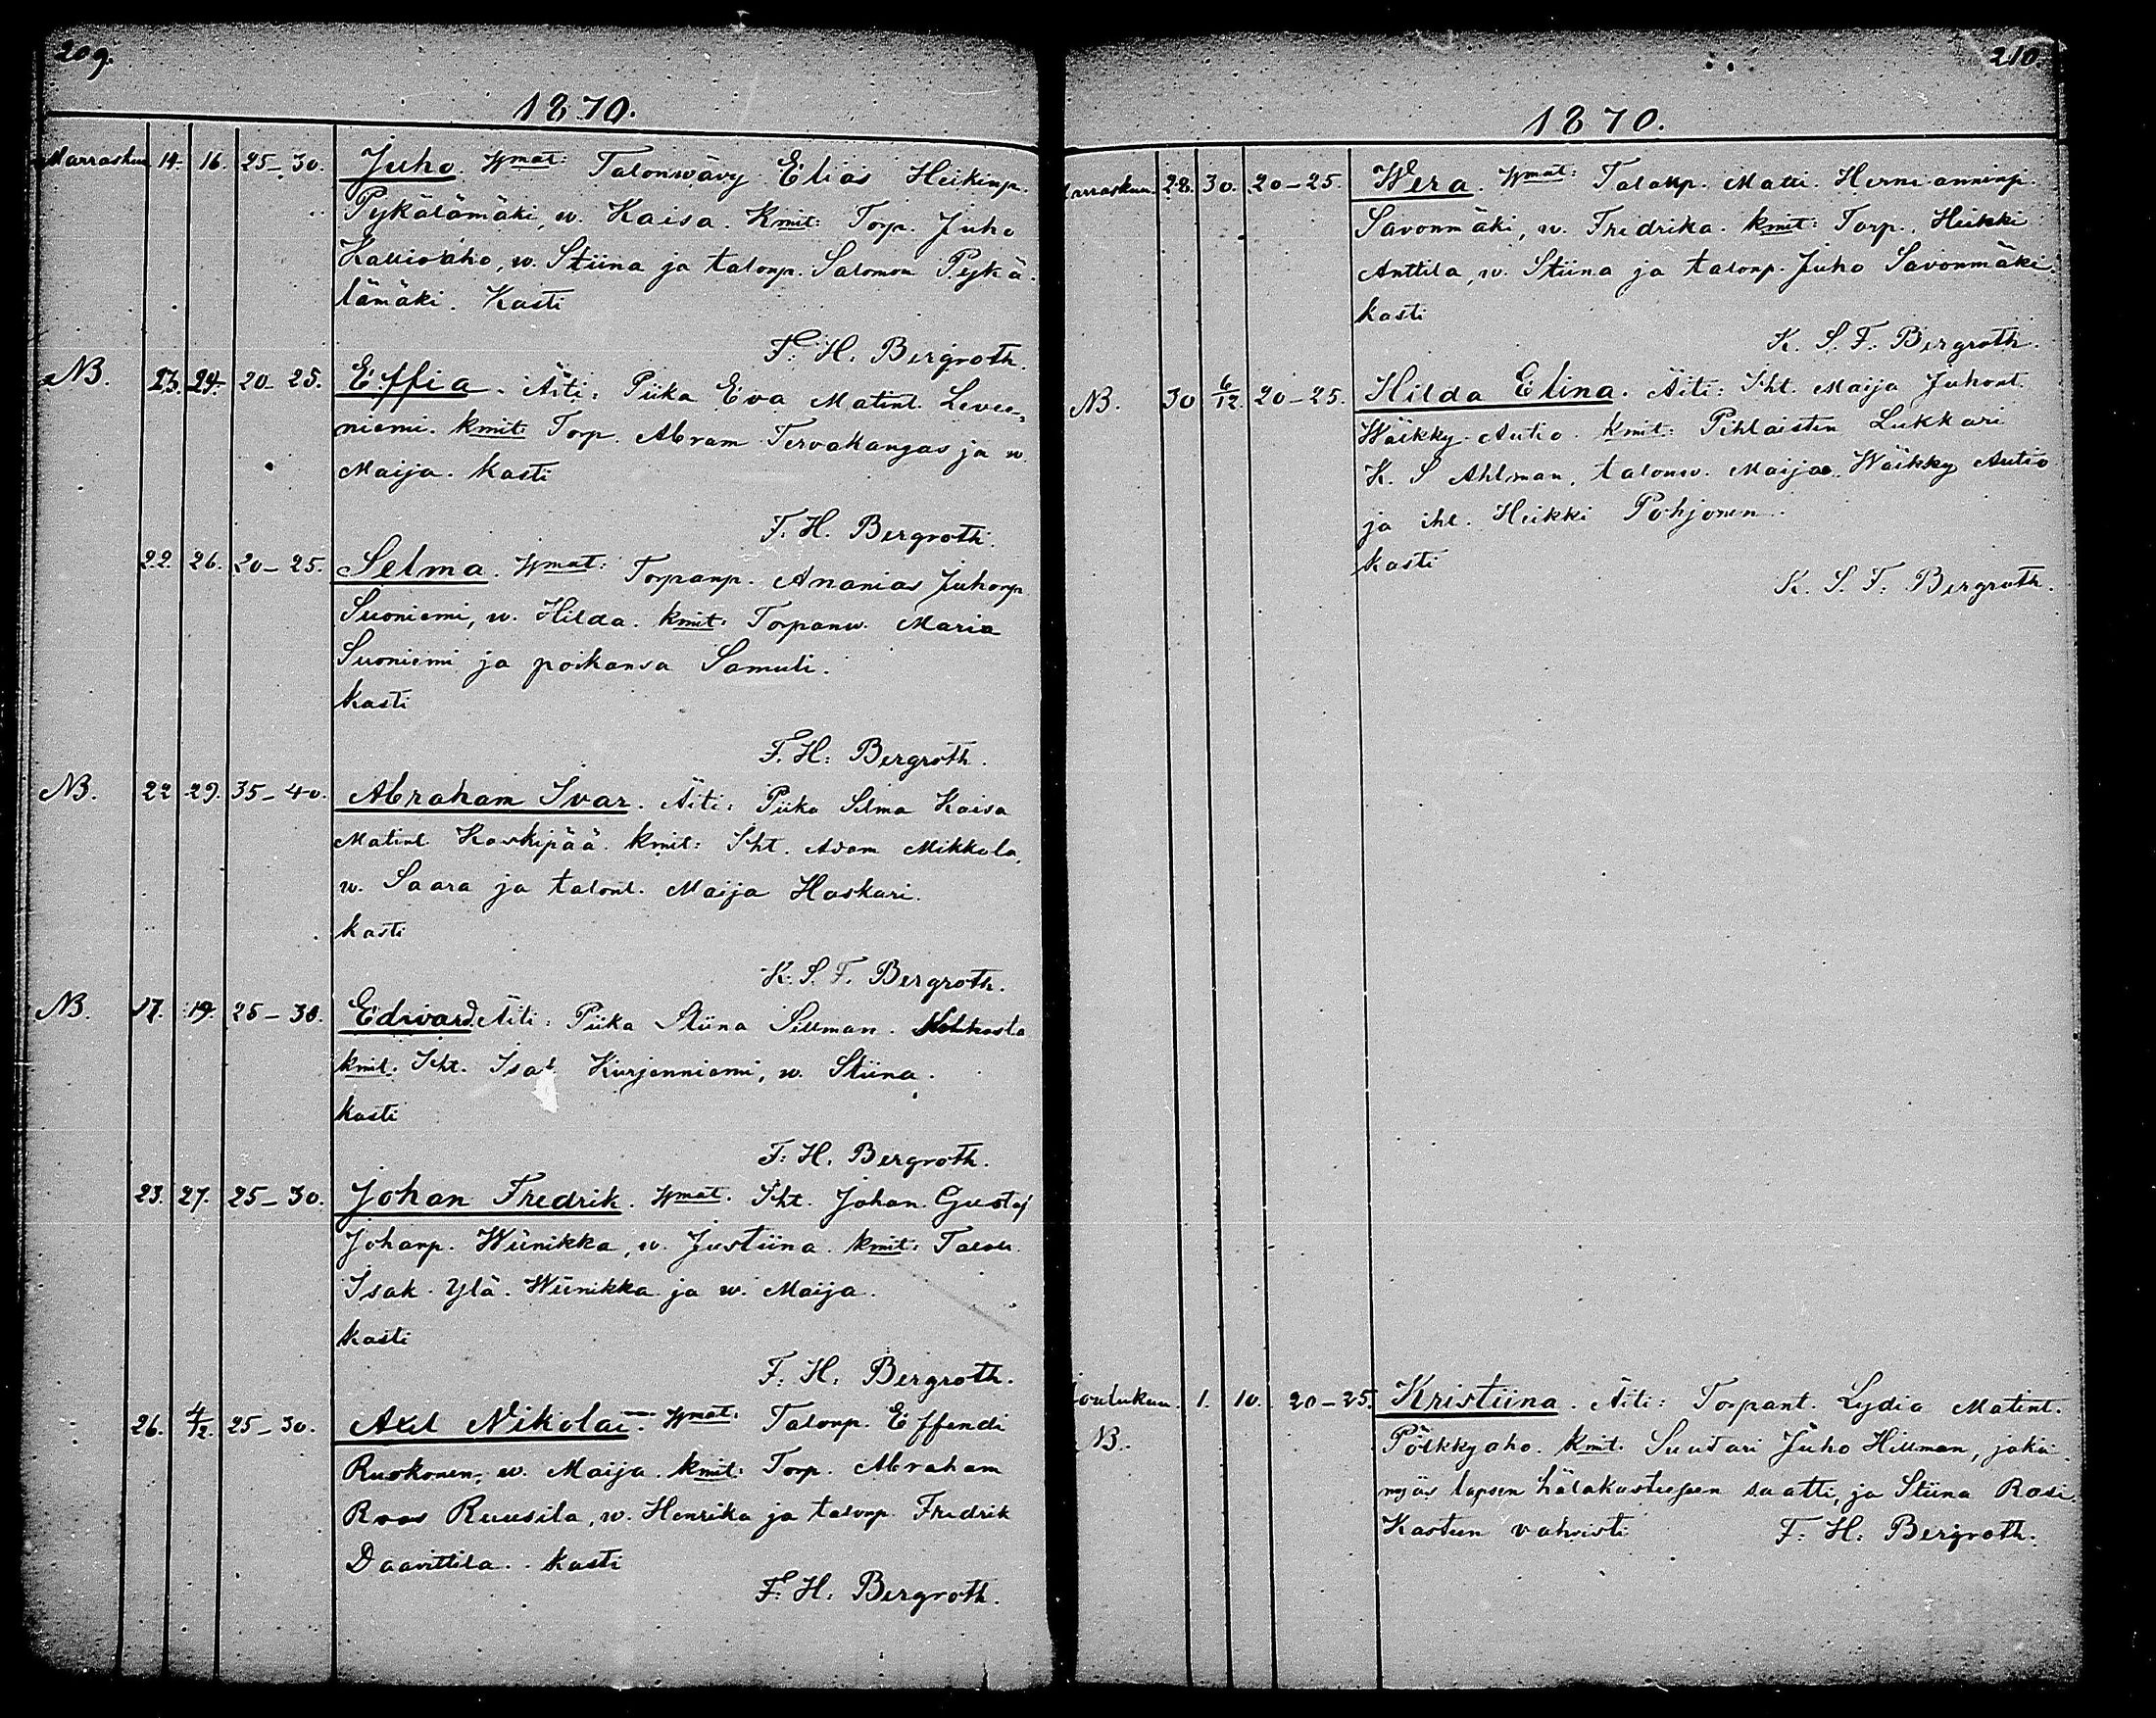 209.
1870.
Marraskuu 14. 16. 25-30. Juho. Wmat: Talonwävy Elias Heikinp.
Pykälämäki, w. Kaisa. Kmit: Torp. Juho
Kallioaho, w. Stiina ja talonp. Salomon Pykä-
lämäki. Kasti
F. H. Bergroth.
NB. 23. 24. 20-25. Effia. Äiti: Piika Eva Matint. Leves-
niemi. Kmit: Torp. Abram Tervakangas ja w.
Maija. Kasti
F. H. Bergroth.
22. 26. 20-25. Selma. Wmat: Torpanp. Ananias Juhonp.
Suoniemi, w. Hilda. kmit: Torpanw. Maria
Suoniemi ja poikansa Samuli.
Kasti
F. H. Bergroth.
NB. 22 29. 35-40. Abraham Ivar. Äiti: Piika Selma Kaisa
Matint. Koskipää. kmit: Iht. Adam Mikkola,
w. Saara ja talont. Maija Haskari.
Kasti
K. S. F. Bergroth.
NB. 17. 19. 25-30. Edward. Äiti: Piika Stiina Sillman.
kmit. Iht. Isak Kurjenniemi, w. Stiina.
Kasti
F. H. Bergroth.
23. 27. 25-30. Johan Fredrik. Wmat. Iht. Johan Gustaf
Johanp. Wiinikka, w. Justiina. kmit: Talol.
Isak Ylä-Wiinikka ja w. Maija.
Kasti
F. H. Bergroth.
26. 4/12. 25-30. Axel Nikolai. Wmat: Talonp. Effendi
Ruokonen, w. Maija. kmit: Torp. Abraham
Roos Ruusila, w. Henrika ja talonp. Fredrik
Daavittila. Kasti
F. H. Bergroth.
210.
1870.
Marraskuu. 28. 30. 20-25. Wera. Wmat: Talonp. Matti Hermanninp.
Savonmäki, w. Fredrika. kmit: Torp. Heikki
Anttila, w. Stiina ja talonp. Juho Savonmäki.
Kasti
K. S. F. Bergroth.
NB. 30 6/12. 20-25. Hilda Elina. Äiti: Iht. Maija Juhont.
Wäikky-Autio. Kmit: Pihlaisten Lukkari
K. S Ahlman, talonw. Maija Wäikky Autio
ja ihl. Heikki Pohjonen.
Kasti
K. S. F. Bergroth.
Joulukuu. 1. 10. 20-25. Kristiina. Äiti: Torpant. Lydia Matint.
NB. Pölkkyaho. Kmit. Suutari Juho Hillman, joka
myös lapsen hätäkasteesen saatti, ja Stiina Rasi.
Kasteen vahvisti F. H. Bergroth.